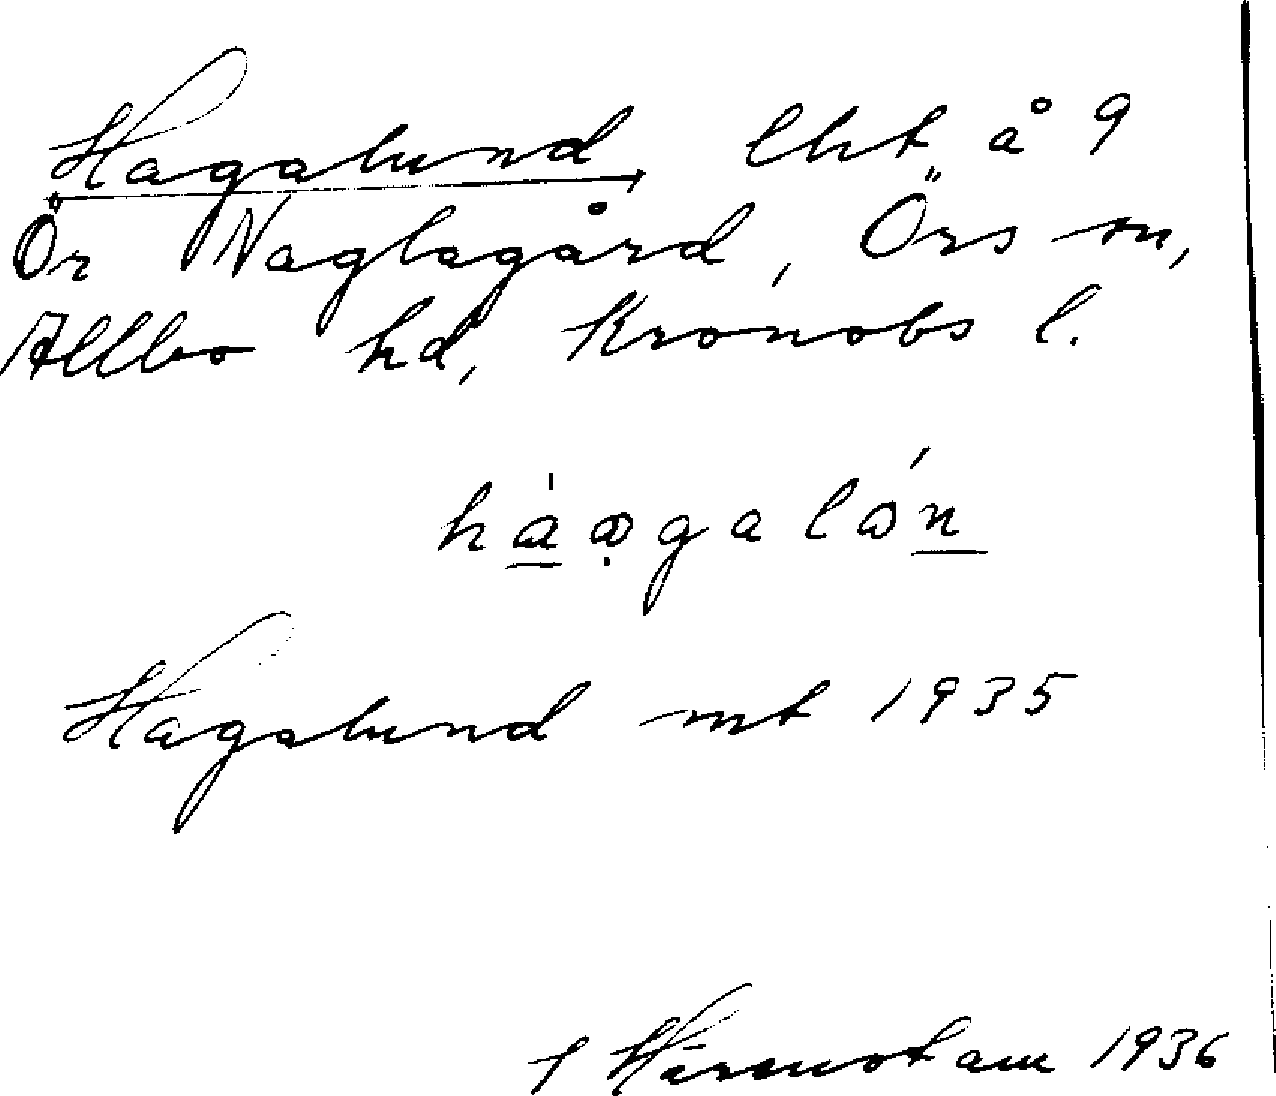 Hagalund lht å 9
Ör Naglagård, Örs sn,
Allbo hd, Kronobs l.
há̲ọgalón̲
Hagalund mt 1935
1936